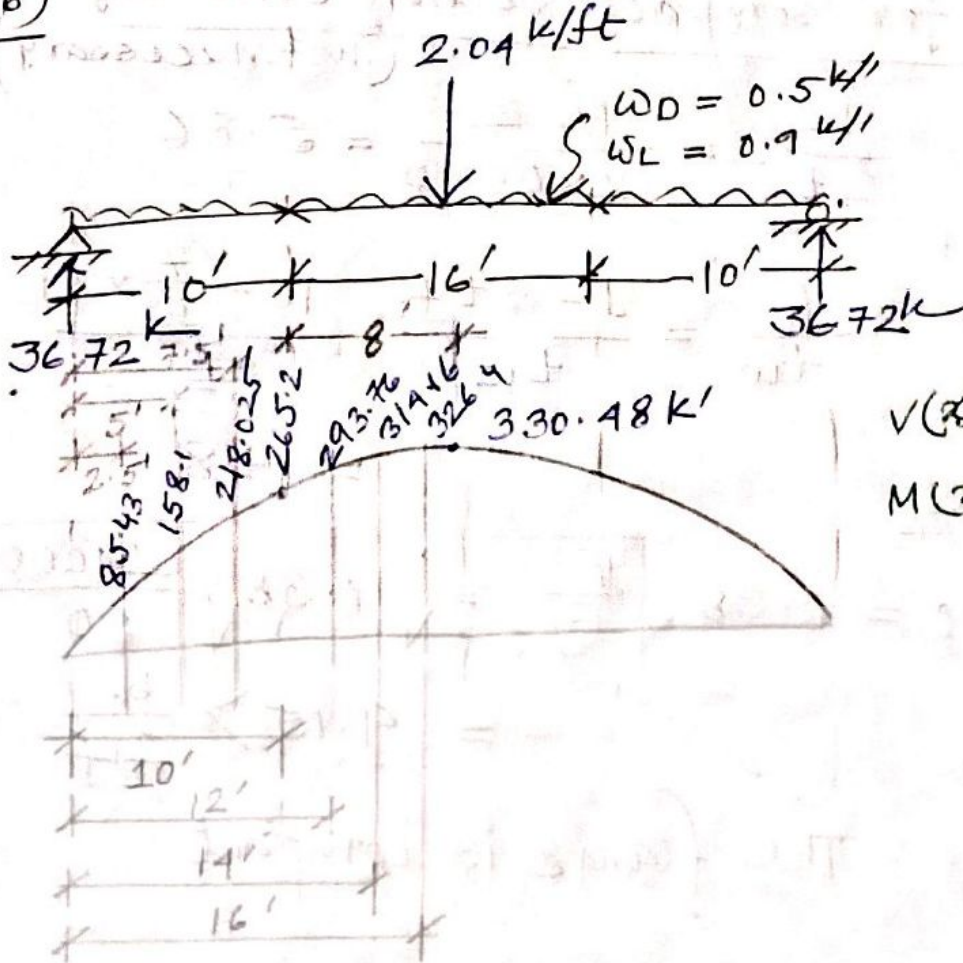 b)
2.04 k/ft
ωD = 0.5 k/'
ωL = 0.9 k/'
10' 16' 10'
36.72 k 8' 36.72k
7.5'
5'
2.5'
85.43 158.1 218.025 265.2 293.76 314.16 326.4 330.48 K'
V(x
M(
10'
12'
14'
16'